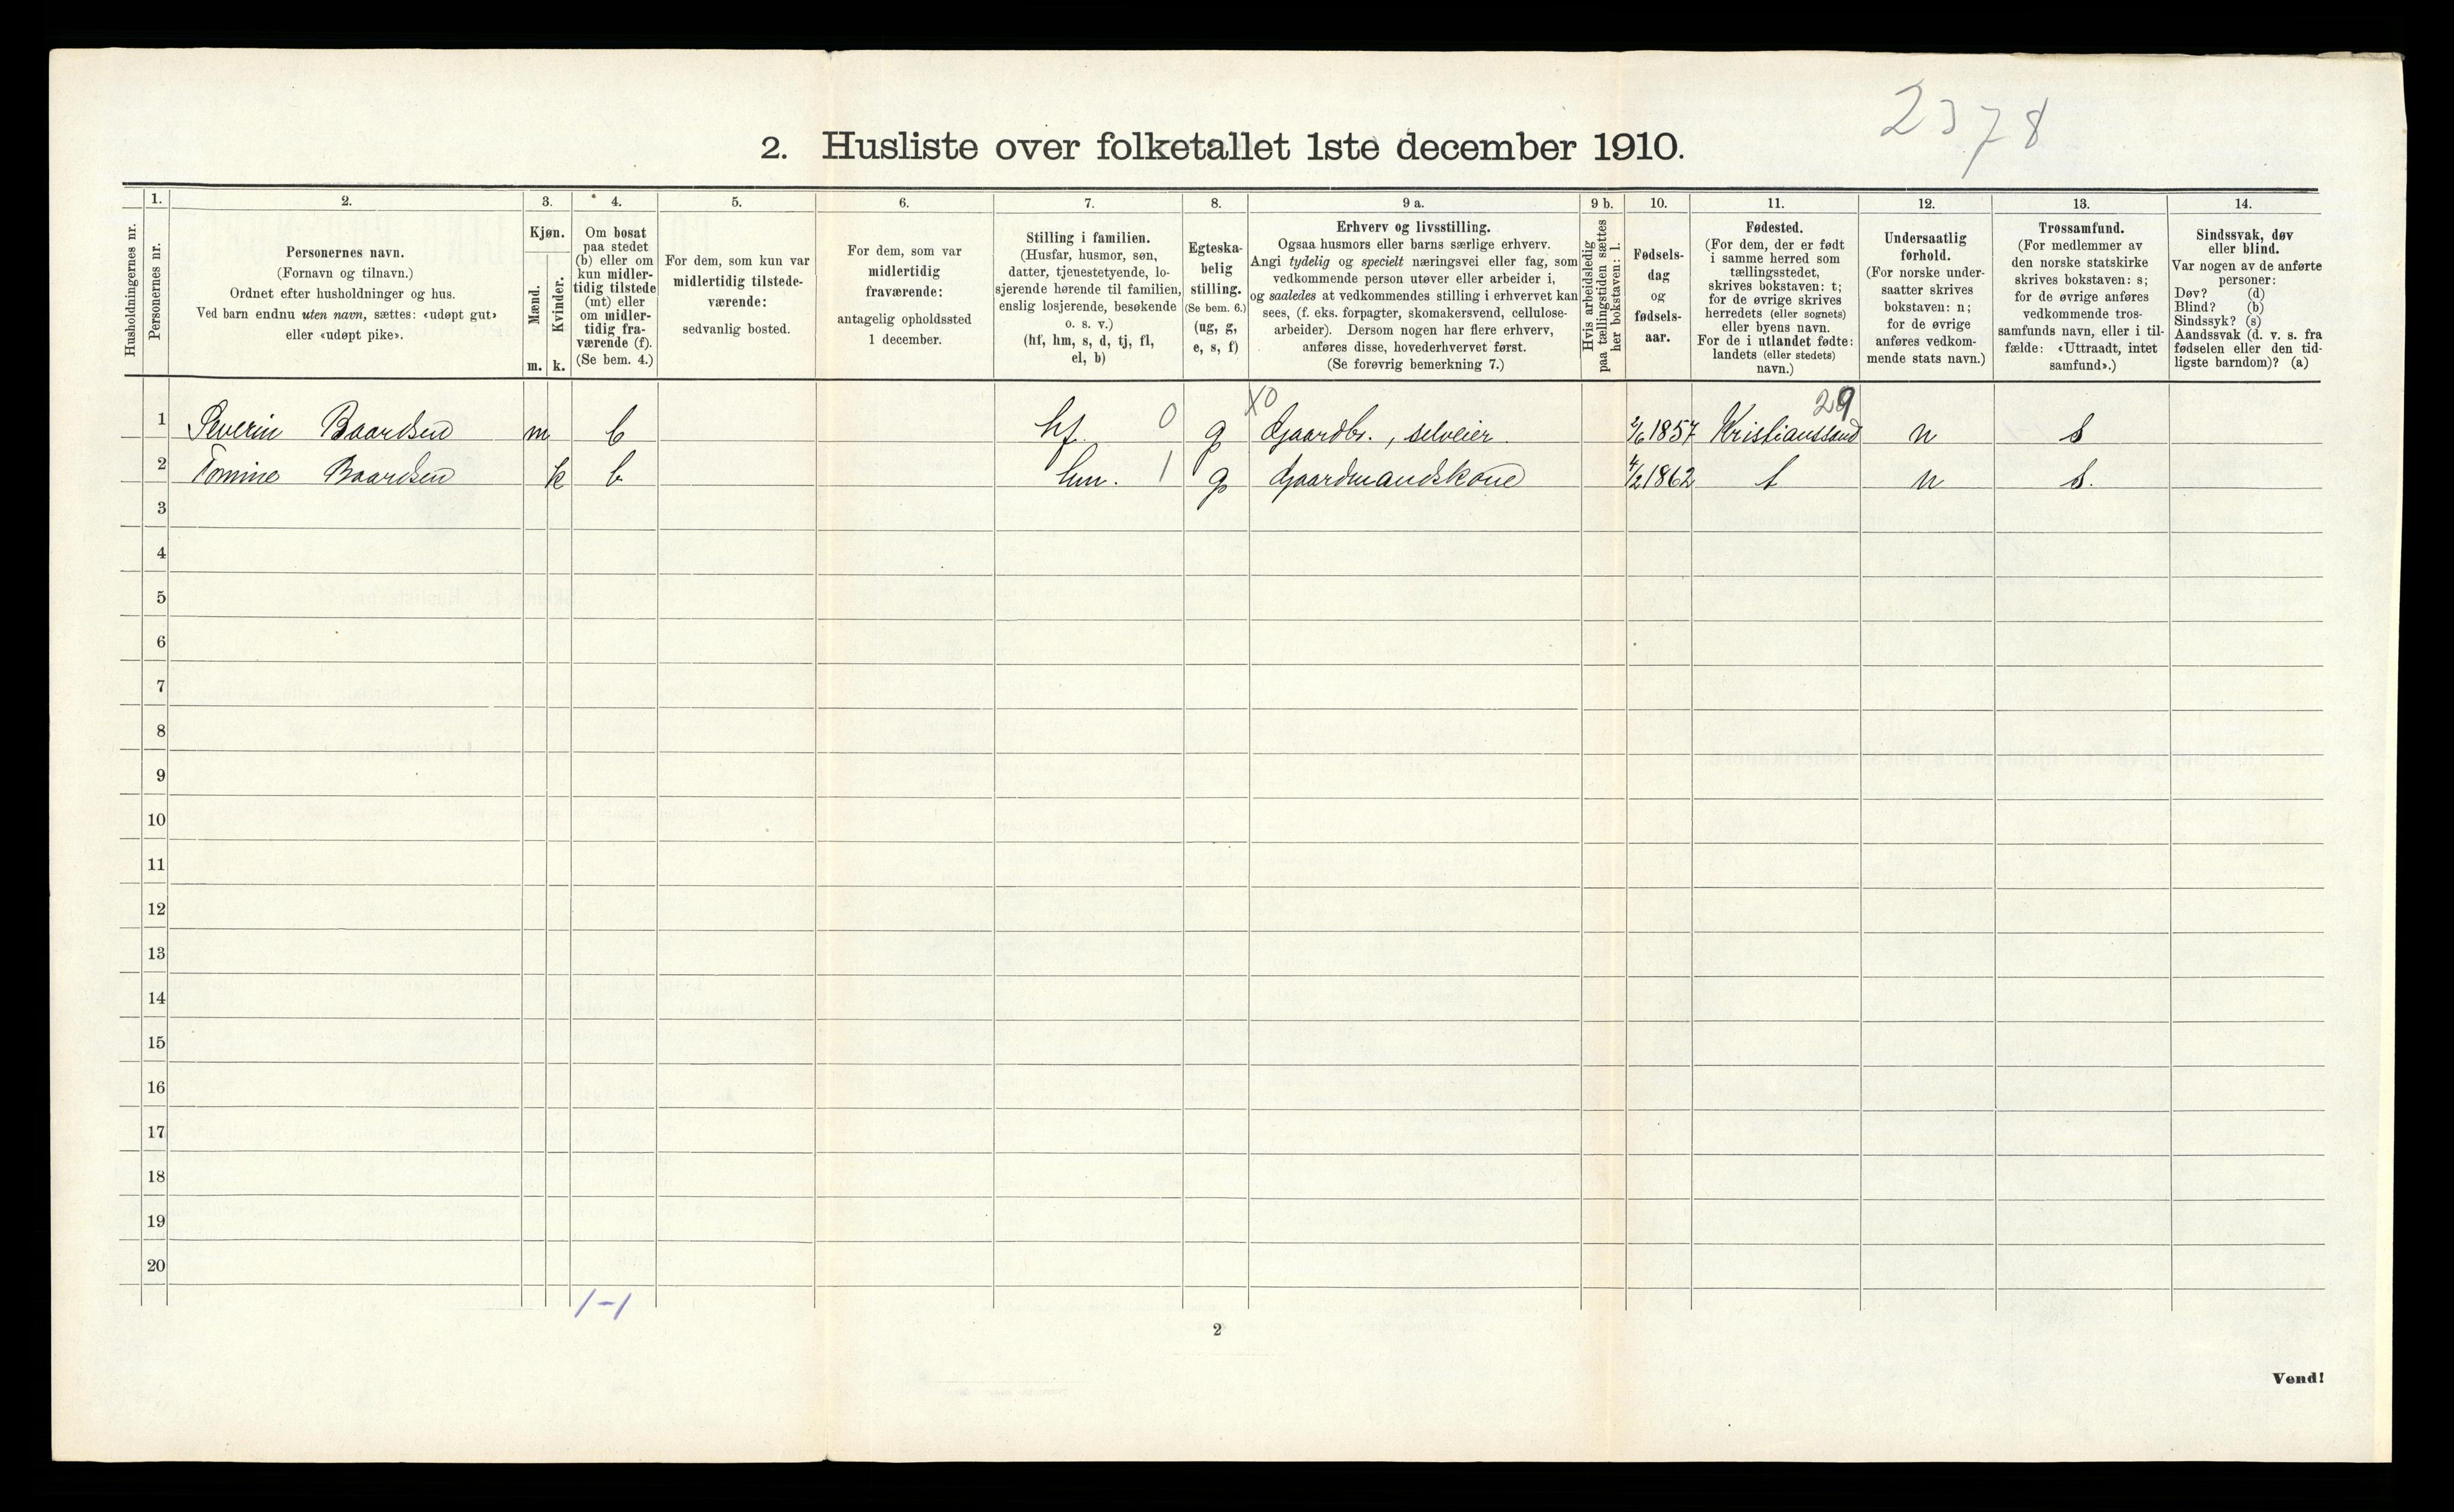 2378
2. Husliste over folketallet 1ste december 1910.
Husholdningernes nr.
1.
Personernes nr.
2.
Personernes navn.
(Fornavn og tilnavn.)
Ordnet efter husholdninger og hus.
Ved barn endnu uten navn, sættes: «udøpt gut»
eller «udøpt pike».
3.
Kjøn.
Mænd.
Kvinder.
m. k.
4.
Om bosat
paa stedet
(b) eller om
kun midler-
tidig tilstede
(mt) eller
om midler-
tidig fra-
værende (f).
(Se bem. 4.)
5.
For dem, som kun var
midlertidig tilstede-
værende:
sedvanlig bosted.
6.
For dem, som var
midlertidig
fraværende:
antagelig opholdssted
1 december.
7.
Stilling i familien.
(Husfar, husmor, søn,
datter, tjenestetyende, lo-
sjerende hørende til familien,
enslig losjerende, besøkende
o. s. v.)
(hf, hm, s, d, tj, fl,
el, b)
8.
Egteska-
belig
stilling.
(Se bem. 6.)
(ug, g,
e, s, f)
9 a.
Erhverv og livsstilling.
Ogsaa husmors eller barns særlige erhverv.
Angi tydelig og specielt næringsvei eller fag, som
vedkommende person utøver eller arbeider i,
og saaledes at vedkommendes stilling i erhvervet kan
sees, (f. eks. forpagter, skomakersvend, cellulose-
arbeider). Dersom nogen har flere erhverv,
anføres disse, hovederhvervet først.
(Se forøvrig bemerkning 7.)
9 b.
Hvis arbeidsledig
paa tællingstiden sættes
her bokstaven: l.
10.
Fødsels-
dag
og
fødsels-
aar.
11.
Fødested.
(For dem, der er født
i samme herred som
tællingsstedet,
skrives bokstaven: t;
for de øvrige skrives
herredets (eller sognets)
eller byens navn.
For de i utlandet fødte:
landets (eller stedets)
navn.)
12.
Undersaatlig
forhold.
(For norske under-
saatter skrives
bokstaven: n;
for de øvrige
anføres vedkom-
mende stats navn.)
13.
Trossamfund.
(For medlemmer av
den norske statskirke
skrives bokstaven: s;
for de øvrige anføres
vedkommende tros-
samfunds navn, eller i til-
fælde: «Uttraadt, intet
samfund».)
14.
Sindssvak, døv
eller blind.
Var nogen av de anførte
personer:
Døv? (d)
Blind? (b)
Sindssyk? (s)
Aandssvak (d. v. s. fra
fødselen eller den tid-
ligste barndom)? (a)
X0 29
1 Severin Baardsen m b hf. 0 g Gaardbr., selveier. 2/6 1857 Kristianssand n s
2 Tomine Baardsen k b hm. 1 g Gaardmandskone 4/2 1862 t n s.
3
4
5
6
7
8
9
10
11
12
13
14
15
16
17
18
19
20
1-1
2
Vend!